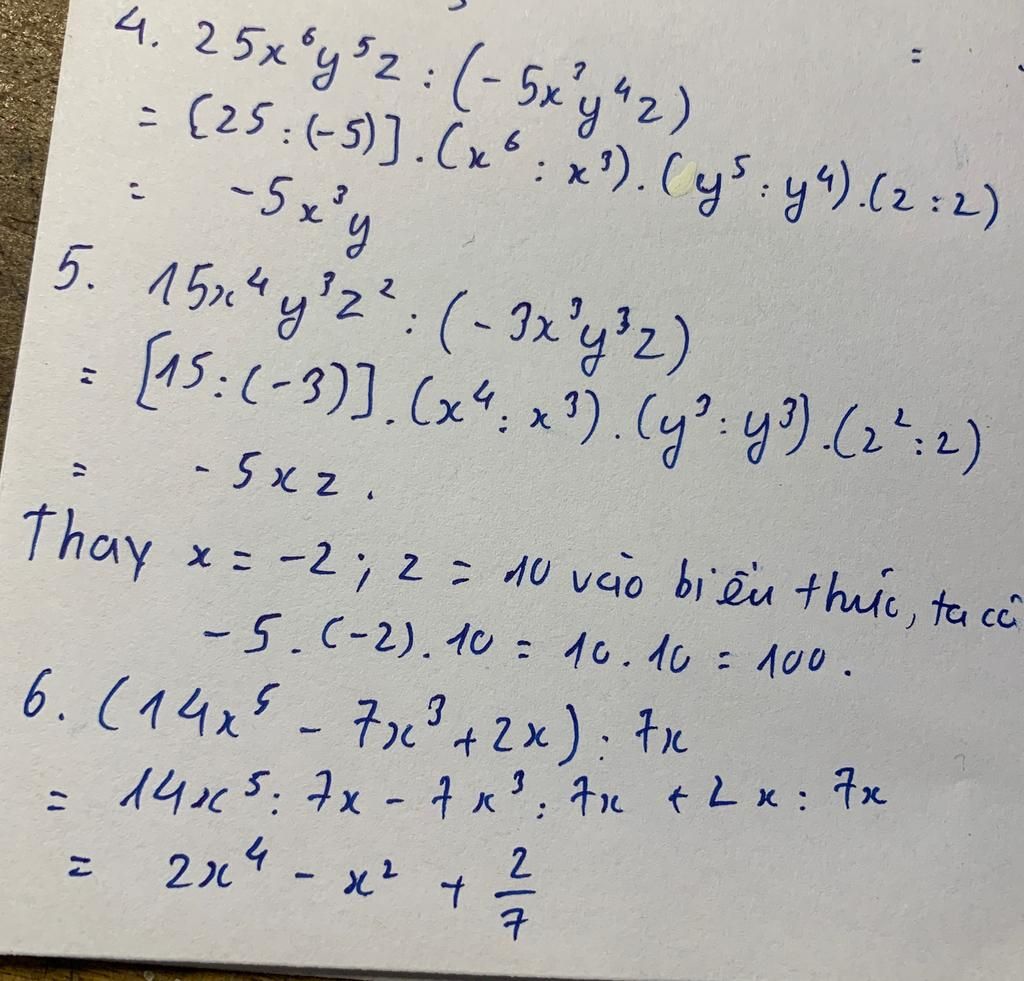 4. 25x⁶y⁵z : (-5x³y⁴z)
= [25 : (-5)] . (x⁶ : x³) . (y⁵ : y⁴) . (z : z)
= -5x³y
5. 15x⁴y³z² : (-3x³y³z)
= [15 : (-3)] . (x⁴ : x³) . (y³ : y³) . (z² : z)
= -5xz.
Thay x = -2 ; z = 10 vào biểu thức, ta có
-5 . (-2) . 10 = 10 . 10 = 100.
6. (14x⁵ - 7x³ + 2x) : 7x
= 14x⁵ : 7x - 7x³ : 7x + 2x : 7x
= 2x⁴ - x² + 2/7